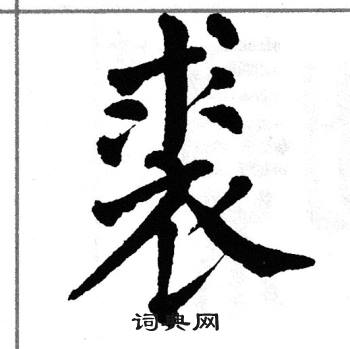 裘
词典网